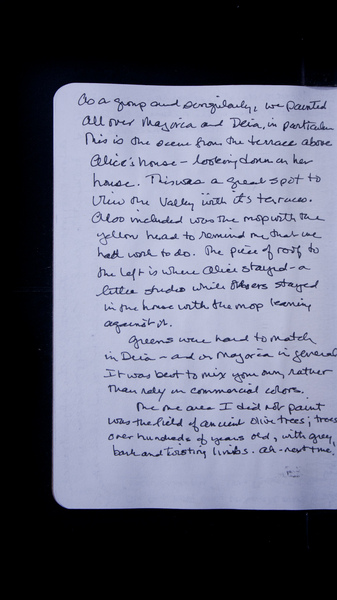 As a group and singularly, we painted
all over Majorca and Deia, in particular
This is the scene from the terrace above
Alice's house - looking down on her
house. This was a great spot to
view the Valley with it's terraces.
Also included was the mop with the
yellow head to remind me that we
had work to do. The piece of roof to
the left is where Alice stayed - a
little studio while others stayed
in the house with the mop leaning
against it.
Greens were hard to match
in Deia - and on Majorca in general
It was best to mix your own, rather
than rely on commercial colors.
The one area I did not paint
was the field of ancient olive trees; trees
over hundreds of years old, with grey,
bark and twisting limbs. ah - next time.